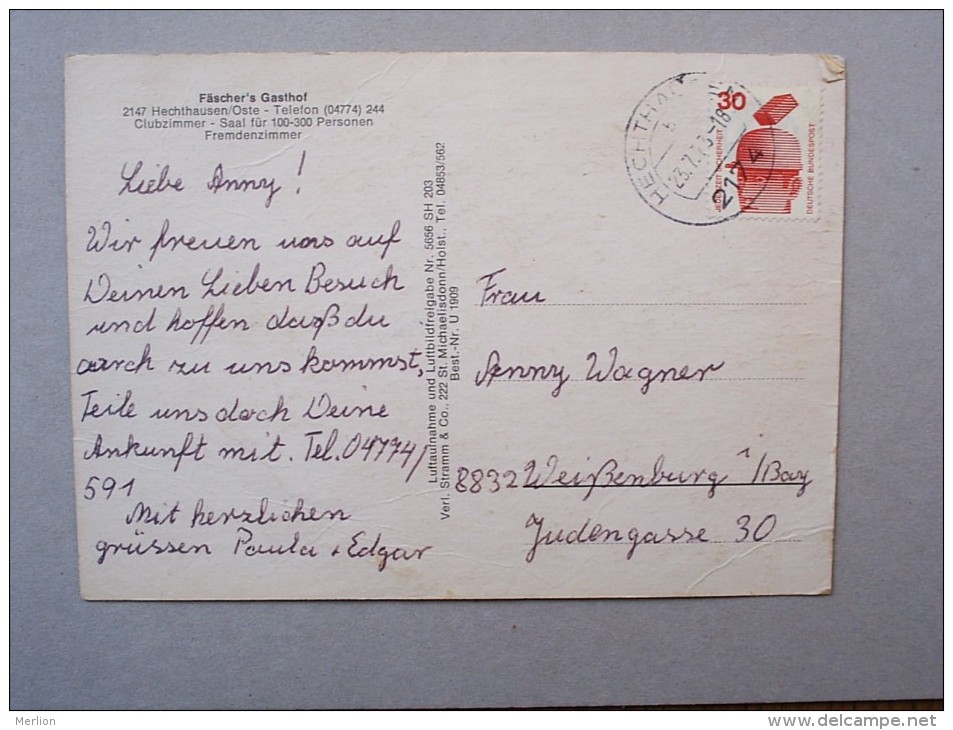 Fäscher's Gasthof
2147 Hechthausen/Oste - Telefon (04774) 244
Clubzimmer - Saal für 100-300 Personen
Fremdenzimmer
Liebe Anny!
Wir freuen uns auf
Deinen Lieben Besuch
und hoffen daß du
auch zu uns kommst,
Teile uns doch Deine
Ankunft mit. Tel. 04774/
591
Mit herzlichen
grüssen Paula + Edgar
Luftaufnahme und Luftbildfreigabe Nr. 5656 SH 203
Verl. Stramm & Co., 222 St. Michaelisdonn/Holst., Tel. 04853/562
Best.-Nr. U 1909
30
JEDERZEIT SICHERHEIT
DEUTSCHE BUNDESPOST
2174
Frau
Anny Wagner
8832 Weißenburg i/Bay
Judengasse 30
Merlion
http://www.delcampe.net